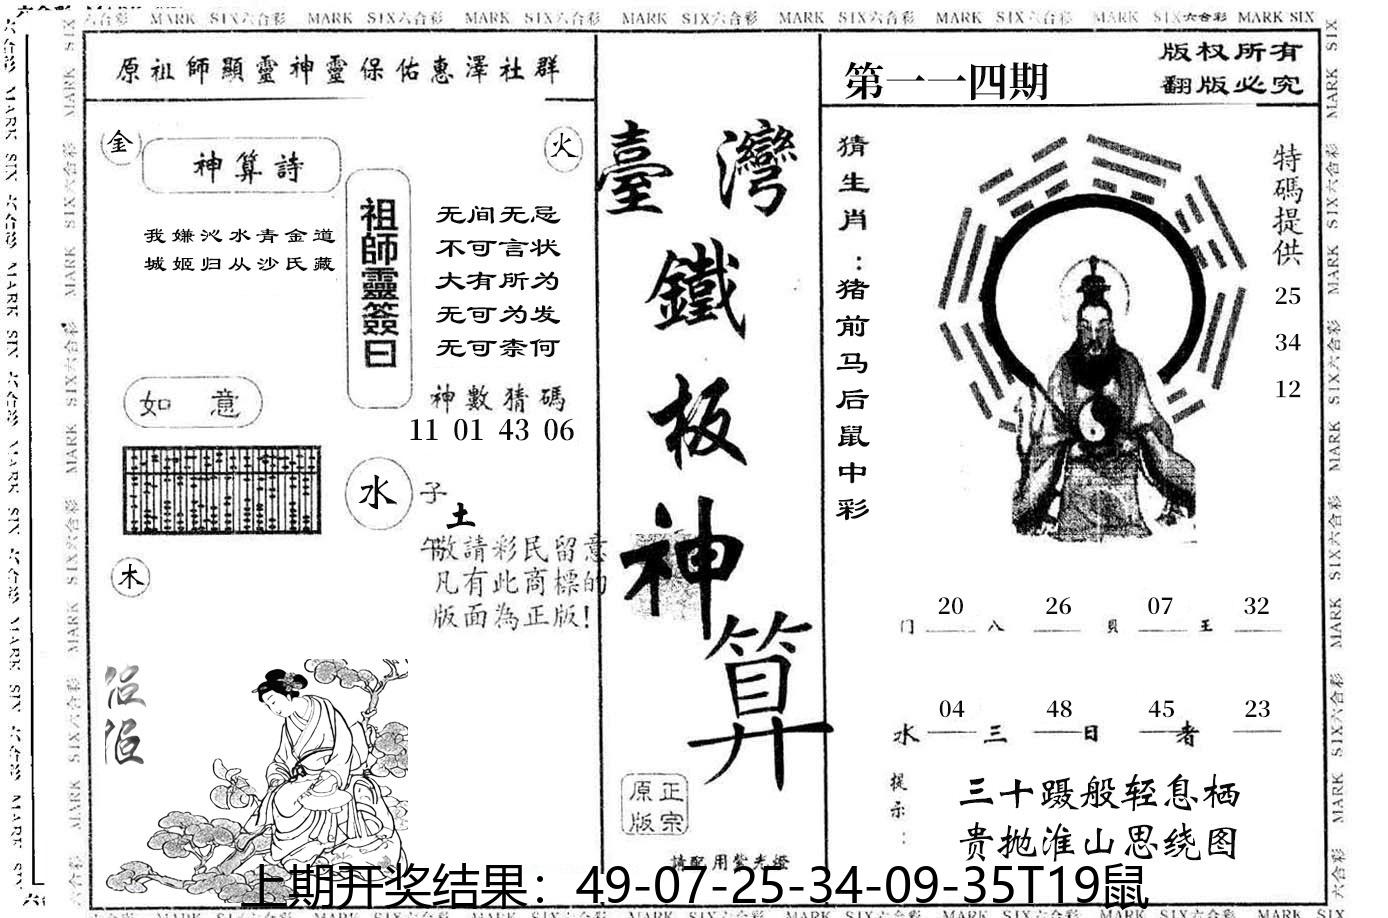 MARK SIX六合彩 MARK SIX六合彩 MARK SIX六合彩 MARK SIX六合彩 MARK SIX六合彩 MARK SIX六合彩 MARK SIX六合彩 MARK SIX
原祖師顯靈神靈保佑惠澤社群
金
神算詩
火
我嫌沁水青金道
城姬归从沙氏藏
祖師靈簽曰
无间无忌
不可言状
大有所为
无可为发
无可柰何
神數猜碼
11 01 43 06
如意
水
子
土
午
敬請彩民留意
凡有此商標的
版面為正版!
木
臺灣
鐵
板
神
算
正宗
原版
請配用紫光燈
第一一四期
版权所有
翻版必究
猜生肖:猪前马后鼠中彩
特碼提供
25
34
12
20 26 07 32
门 八 貝 王
04 48 45 23
水 三 日 者
提示:
三十蹑般轻息栖
贵抛淮山思绕图
上期开奖结果：49-07-25-34-09-35T19鼠